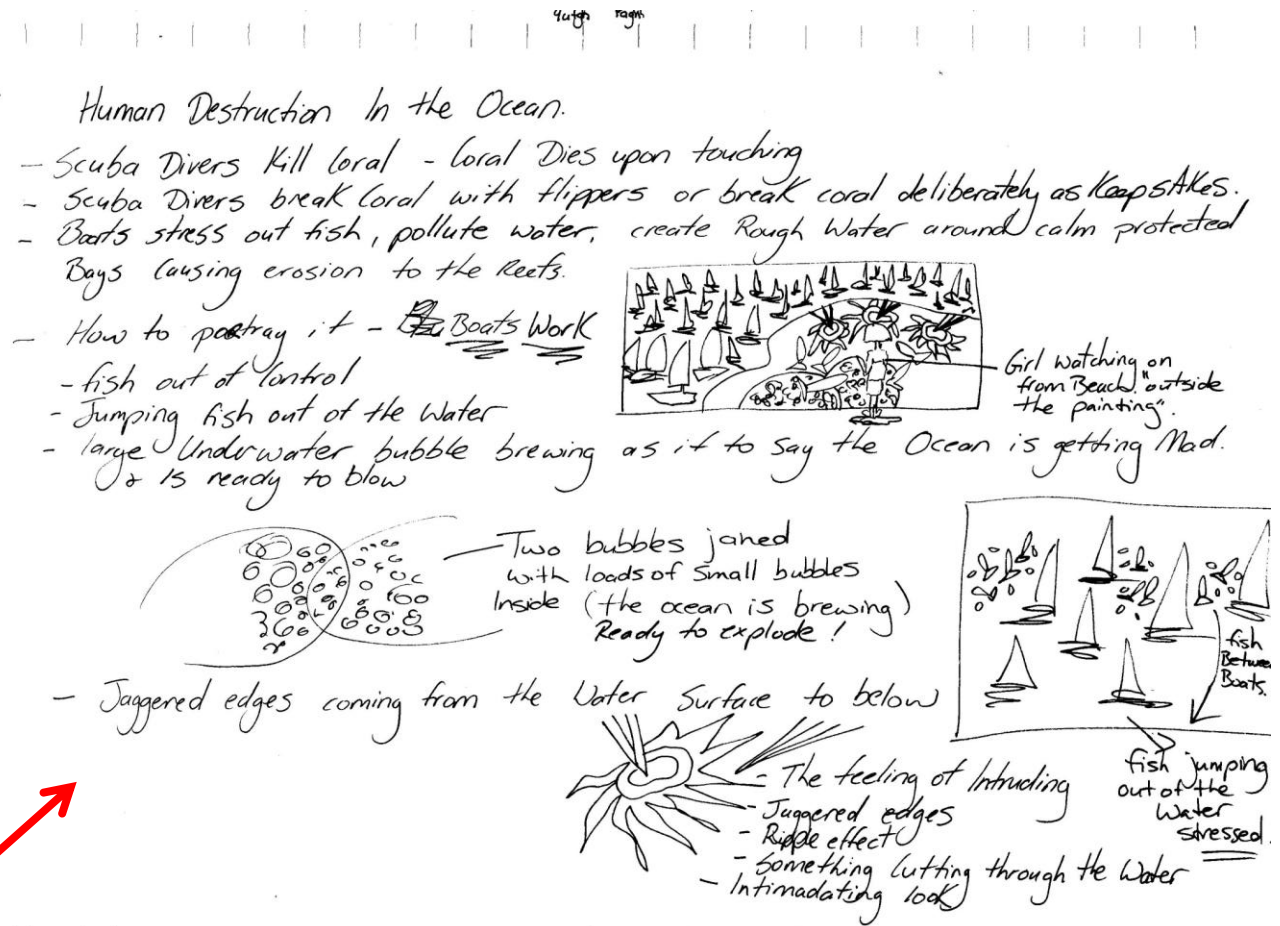 Human Destruction In the Ocean.
- Scuba Divers Kill Coral - Coral Dies upon touching
- Scuba Divers break Coral with flippers or break coral deliberately as KeepsAKes.
- Boats stress out fish, pollute water, create Rough Water around calm protected
Bays Causing erosion to the Reefs.
- How to portray it - Boats Work
- fish out of Control
- Jumping fish out of the Water
Girl watching on
from Beach "outside
the painting".
- large Underwater bubble brewing as if to say the Ocean is getting Mad.
& Is ready to blow
- Two bubbles joned
with loads of Small bubbles
Inside (the ocean is brewing)
Ready to explode!
fish
Between
Boats.
- Jaggered edges coming from the Water Surface to below
fish jumping
out of the
Water
stressed.
- The feeling of Intruding
- Jaggered edges
- Ripple effect
- Something Cutting through the Water
- Intimadating look